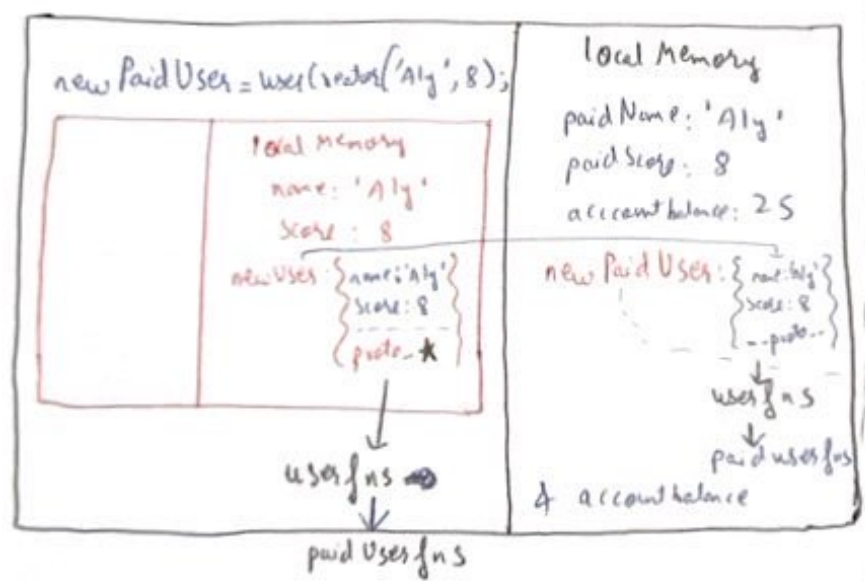 newPaidUser = user(vector('Aly', 8);
local memory
name: 'Aly'
score: 8
newUser: { name: 'Aly'
score: 8
proto_ ★ }
userfns
paidUserfns
local Memory
paidName: 'Aly'
paidScore: 8
accountbalance: 25
newPaidUser: { name: 'Aly'
score: 8
--proto-- }
userfns
paiduserfns
& accountbalance